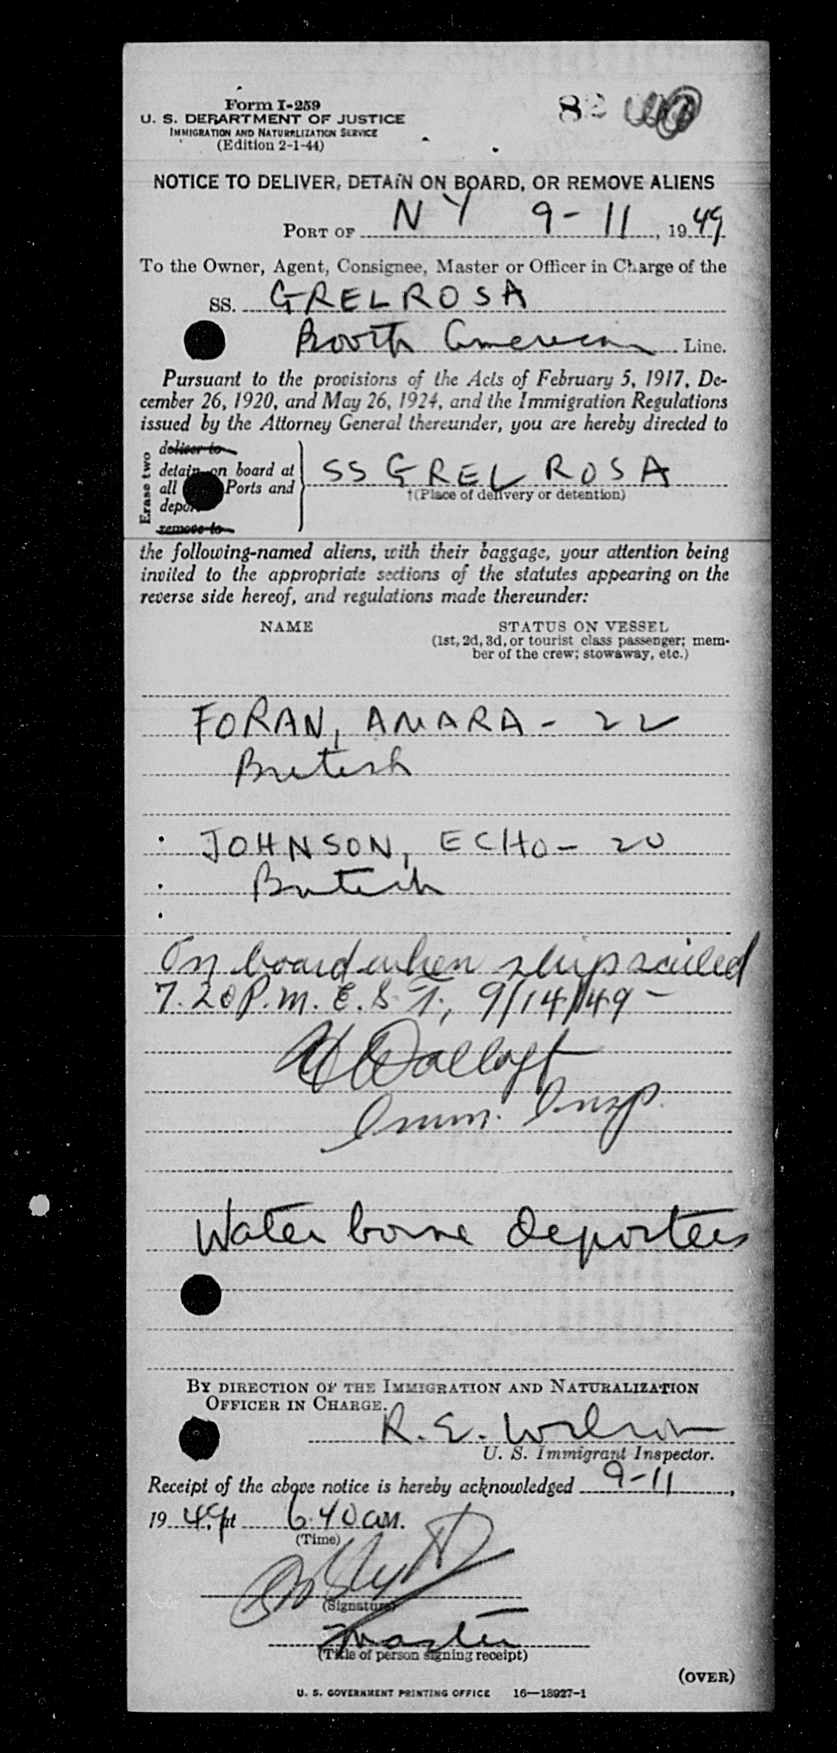 Form I-259
82
U. S. DEPARTMENT OF JUSTICE
IMMIGRATION AND NATURALIZATION SERVICE
(Edition 2-1-44)
NOTICE TO DELIVER, DETAIN ON BOARD, OR REMOVE ALIENS
PORT OF N Y 9-11, 1949
To the Owner, Agent, Consignee, Master or Officer in Charge of the
SS. GRELROSA
Booth American Line.
Pursuant to the provisions of the Acts of February 5, 1917, De-
cember 26, 1920, and May 26, 1924, and the Immigration Regulations
issued by the Attorney General thereunder, you are hereby directed to
Erase two
deliver to
detain on board at
all Ports and
depor
remove to
SS GRELROSA
†(Place of delivery or detention)
the following-named aliens, with their baggage, your attention being
invited to the appropriate sections of the statutes appearing on the
reverse side hereof, and regulations made thereunder:
NAME STATUS ON VESSEL
(1st, 2d, 3d, or tourist class passenger; mem-
ber of the crew; stowaway, etc.)
FORAN, AMARA - 22
British
JOHNSON, ECHO - 20
British
On board when ship sailed
7.20 P.M. E.S.T., 9/14/49 -
Imm. Insp.
Water borne deportees
BY DIRECTION OF THE IMMIGRATION AND NATURALIZATION
OFFICER IN CHARGE.
R. E. Wilson
U. S. Immigrant Inspector.
Receipt of the above notice is hereby acknowledged 9-11,
1949, at 6:40 am.
(Time)
(Signature)
Master
(Title of person signing receipt)
(OVER)
U. S. GOVERNMENT PRINTING OFFICE 16—18927-1